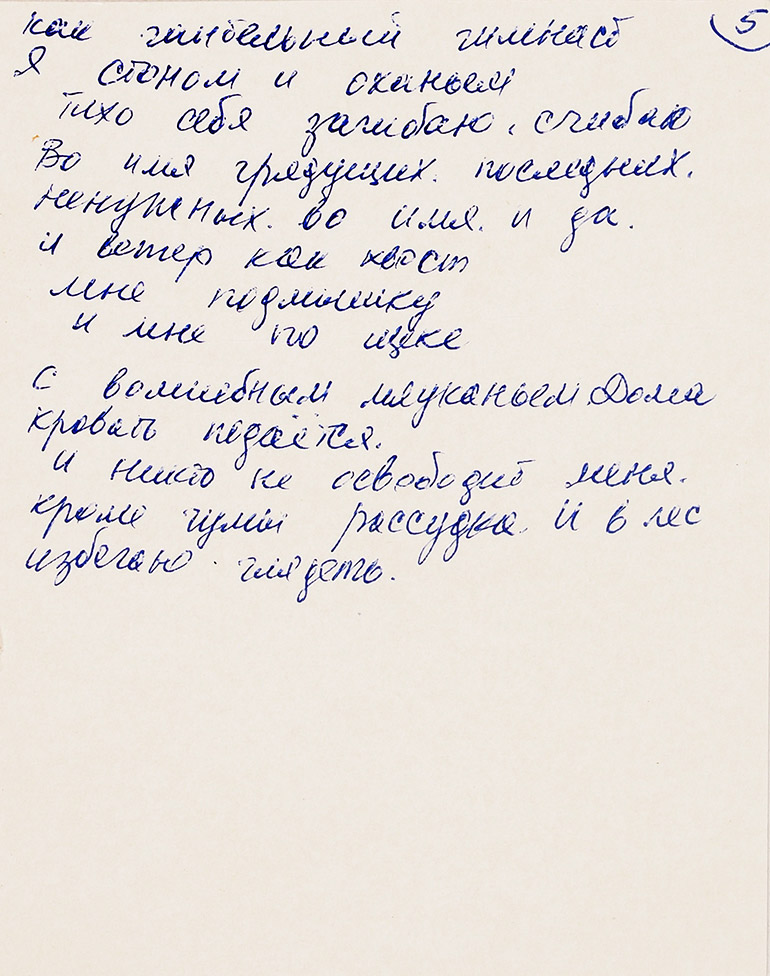 5
как гибельный гимнаст
Я стоном и оханьем
тихо себя загибаю, сгибаю
Во имя грядущих. последних.
ненужных. во имя. и да.
и ветер как хвост
мне подмышку
и мне по щеке
С волшебным мяуканьем Дома
кровать подаётся.
и никто не освободит меня.
кроме чумы рассудка. И в лес
избегаю глядеть.